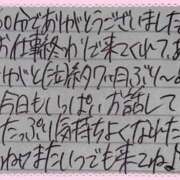 00分でありがとうございました
お仕事終わりに来てくれてあ
りがと(法)約7ヶ月ぶり〜
今日もいっぱいお話して
たっぷり気持ちよくなれた
ねまたいつでも来てね♪